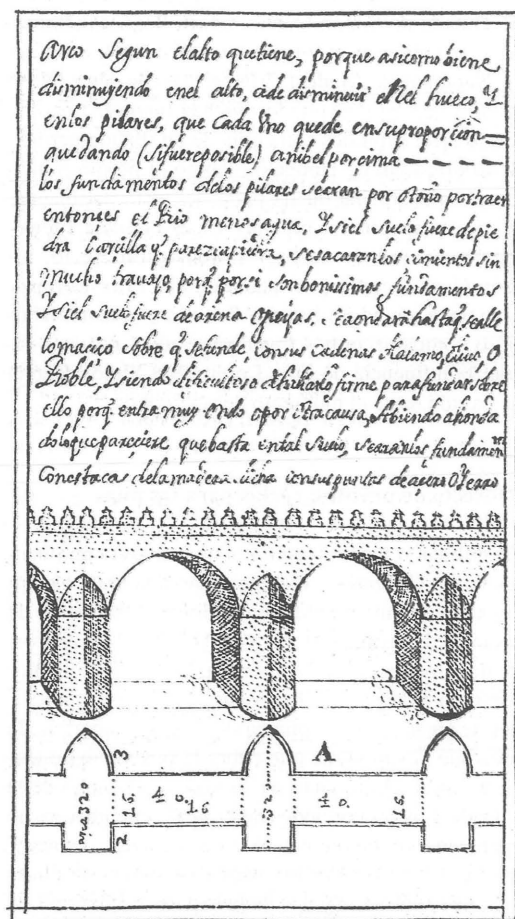 Arco Segun el alto que tiene, porque asi como biene
disminuyendo en el alto, a de disminuir el Nel hueco, Y
en los pilares, que Cada Uno quede en su proporcion
quedando (si fuere posible) a nibel por çima
los fundamentos de los pilares se aran por otoño por traer
entonçes el Rio menos agua, Y si el Suelo fuere de pie
dra O arçilla q. parezca piedra, se sacaran los çimientos sin
mucho travajo, porq. por si son bonissimos fundamentos
Y si el Suelo fuere de arena, se aondara hasta q. se alle
lo maçiço sobre q. se funde, con sus Cadenas O
Roble, Y siendo dificultoso el hallarlo firme para fundar sobre
ello porq. entra muy ondo o por otra causa, abiendo ahonda
do lo que pareçiere que basta en tal Suelo, se aran los fundamen
Con estacas de la madera dicha con sus puntas de açero O Yerro
A
3
arca 320
16.
4 0.
16
320
40.
16.
2